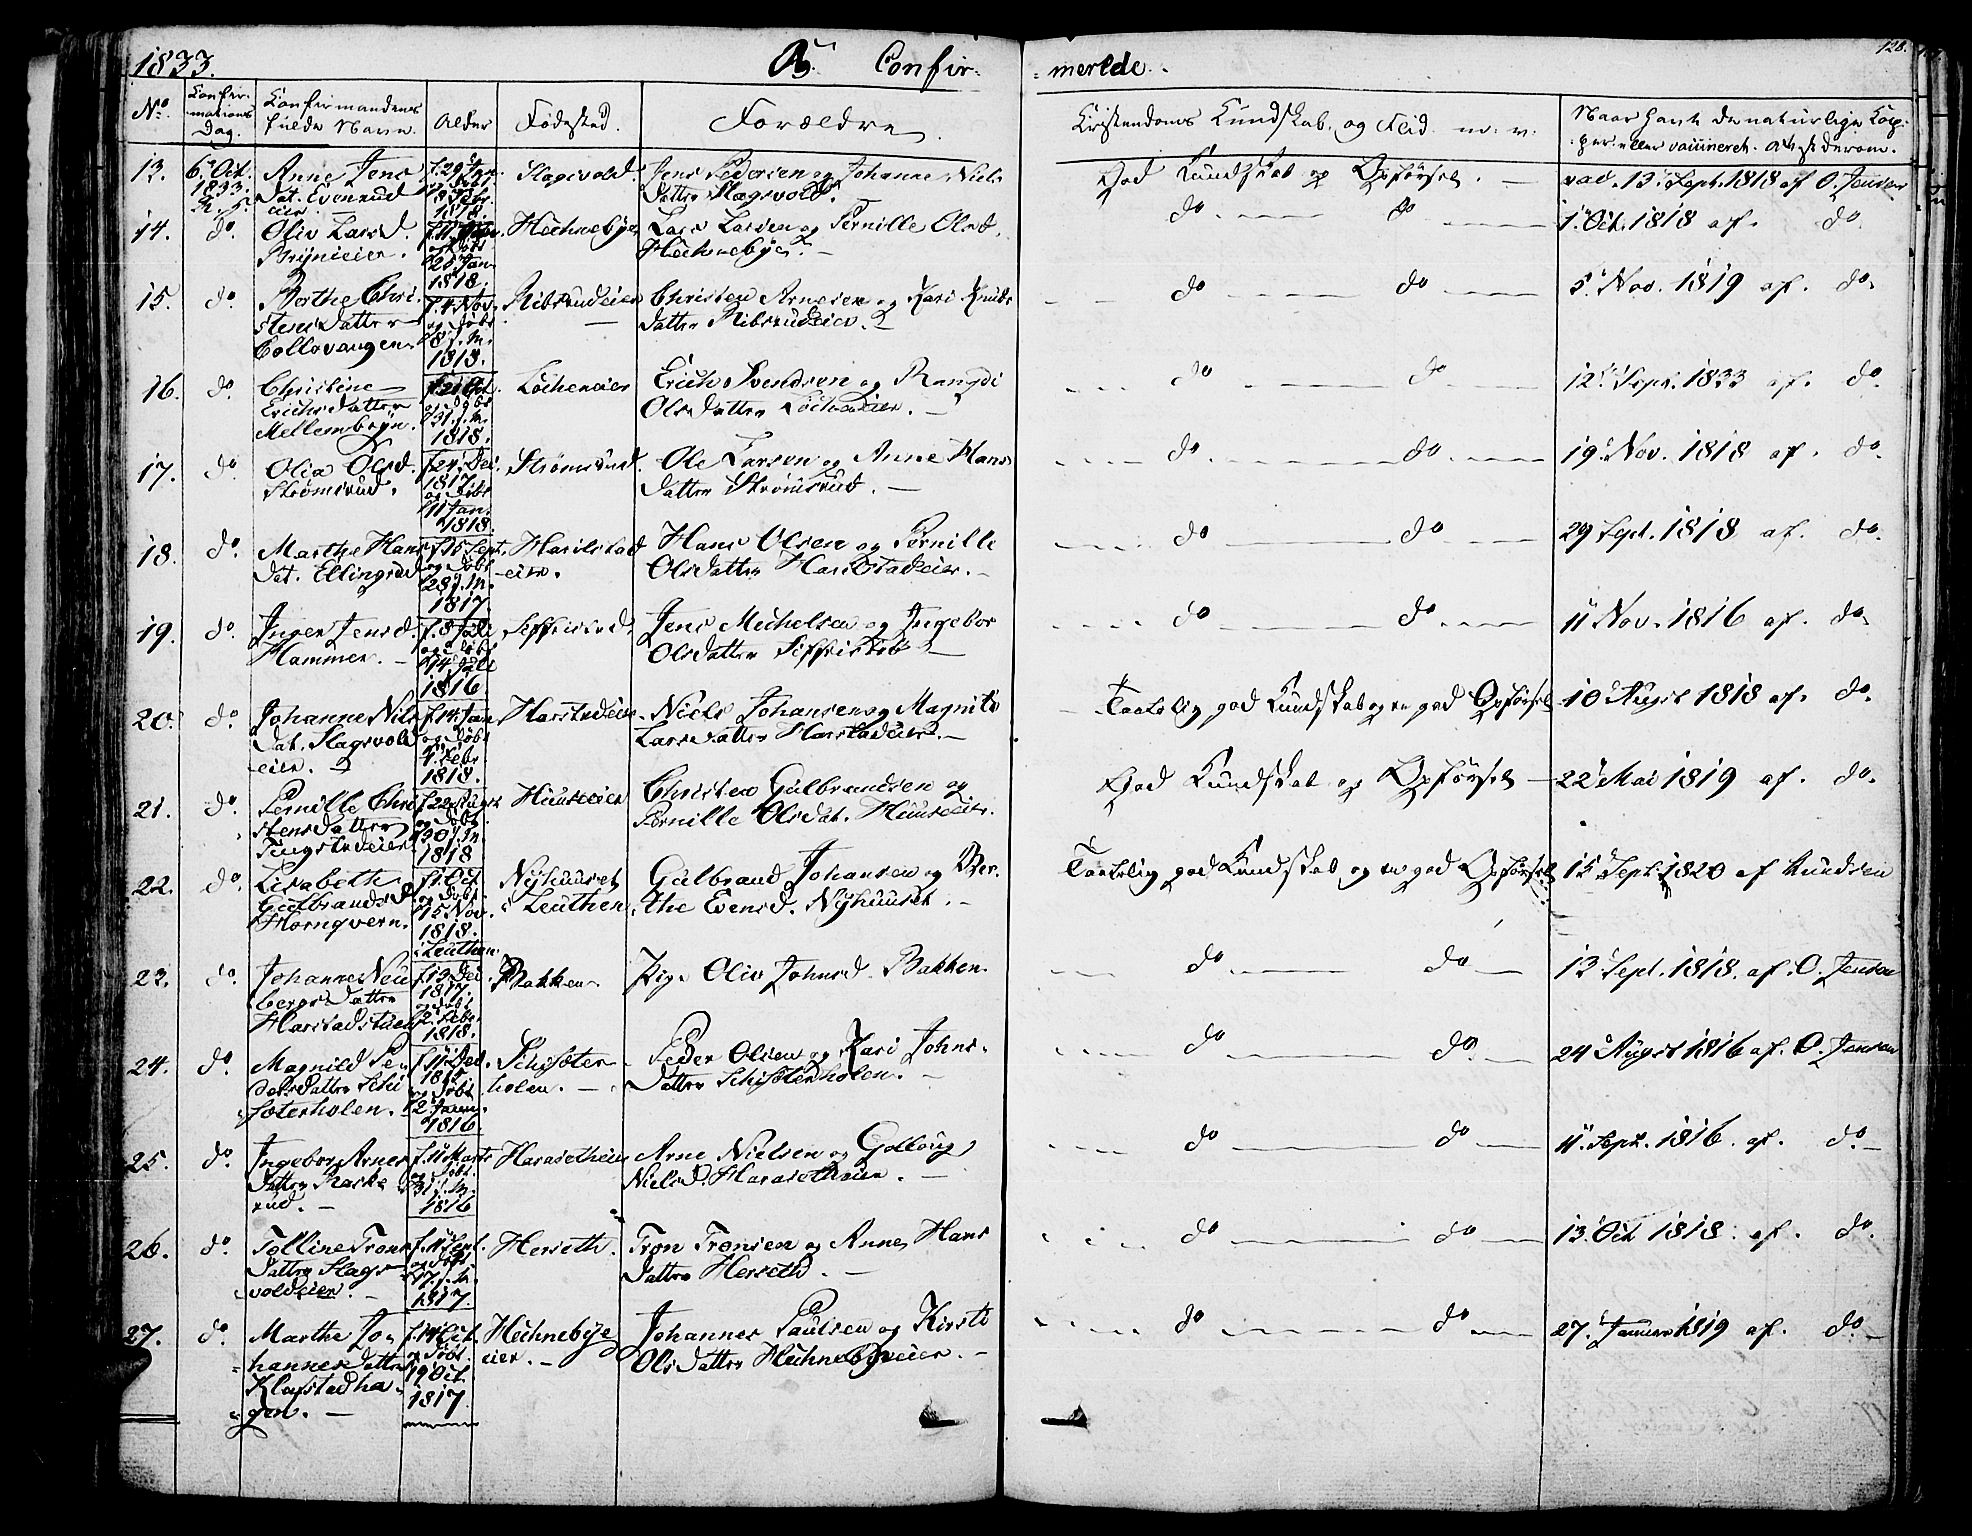 1833. Confir- merede. 128.
No. Confirmations Dag. Confirmandens fulde Navn. Alder Fødested. Forældre Christendoms Kundskab og Flid m. v. Naar havt de naturlige Kopper eller vaccineret. Attest derom.
13. 6 Oct. 1833. Anne Jens Dat. Evenrud eier f. 29 Jan. 1818. Slagsvold. Jens Pedersen og Johanne Niels Datter Slagsvold. God Kundskab og Opførsel. vac. 13 Sept. 1818 af O. Jensen
14. do. Oliv Larsd. Brynieier. 21 Jan. 1818. Hechnebye Lars Larsen og Pernille Olsd. Hechnebye. do do 1 Oct. 1818 af. do.
15. do. Berthe Christensdatter f. 4 Nov. og døbt 8 s. M. 1818. Ribsrudeier Christen Arnesen og Kari Knuds datter Ribsrudeier. do do 5 Nov. 1819 af. do.
16. do. Christine Erichsdatter Mellembyn. 31 s. M. 1818. Løcheneier Erich Svendsen og Rangdi Olsdatter Løcheneier. do do 12 Sept. 1833 af. do.
17. do. Olia Olsd. Strømsrud. f. 24 Dec. 1817 og døbt 11 Jan. 1818. Strømsrud. Ole Larsen og Anne Hans datter Strømsrud. do. do 19 Nov. 1818 af. do.
18. do. Marthe Hans Dat. Ellingsrud f. 15 Sept. og døbt 28 s. M. 1817. Harilstad eier. Hans Olsen og Pernille Olsdatter Harilstadeier. do do 29 Sept. 1818 af. do.
19. do. Inger Jensd. Hammer. f. 8 Juli og døbt 14 Juli 1816. Jens Michelsen og Ingebor Olsdatter do do 11 Nov. 1816 af. do.
20. do. Johanne Nils Dat. Slagsvold eier. f. 14 Jan og døbt 1 Febr. 1818. Harstadeier Niels Johansen og Magnild Larsdatter Harstadeier. Taalelig god Kundskab og en god Opførsel 10 Augst 1818 af. do.
21. do. Pernille Christensdatter f. 22 Augst og døbt 30 s. M. 1818 Huuseeier Christen Gulbrandsen og Pernille Olsdat. Huuseeier. God Kundskab og Opførsel 22 Mai 1819 af. do.
22. do. Lisabeth Gulbrandsd. Hornqvern. f. 1 Oct. og døbt 15 Nov. 1818. i Leuthen. Nyhuuset i Leuthen. Gulbrand Johansen og Berthe Evensd. Nyhuuset. Taalelig god Kundskab og en god Opførsel. 15 Sept. 1820 af Knudsen
23. do. Johanne Neubergsdatter Harstadstuen f. 19 Dec. 1817. og døbt 2 Febr. 1818. Bakken. Pige Oliv Johnsd. Bakken. do do 13 Sept. 1818. af. O. Jensen
24. do. Magnild Pedersdatter Schisæterholen. f. 11 Dec. 1815 og døbt 2 Januar 1816. Schisæterholen. Peder Olsen og Kari Johnsdatter Schisæterholen. do do. 24 Augst 1816 af. O. Jensen
25. do. Ingebor Arnes datter Raskerud. f. 11 Marts og døbt 31 s. M. 1816 Harasetheier Arne Nielsen og Golloug Nielsd. Harasetheier. do do 11 Sept. 1816. af. do.
26. do. Tolline Trons datter Slagsvoldeier. f. 11 Sept. og døbt 17 s. M. 1817. Herseth. Tron Tronsen og Anne Hans datter Herseth. do do 13 Oct 1818. af. do.
27. do. Marthe Johannesdatter Klafstadhagen. f. 14 Oct. og døbt 19 Oct. 1817. Hechnebye eier. Johannes Paulsen og Kirsti Olsdatter Hechnebyeeier. do do 27. Januar 1819 af. do.